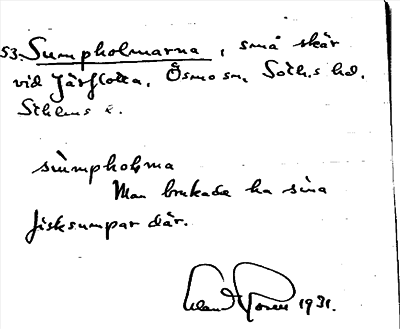 53. Sumpholmarna, små skär
vid Järflotta, Ösmo sn, Soth.s hd.
Sthlms l.
sùmpholma
Man brukade ha sina
fisksumpar där.
1931.